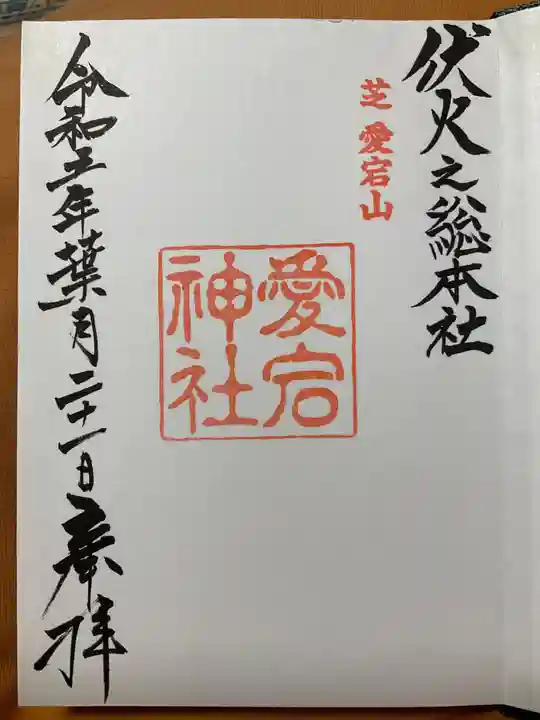 伏火之總本社
芝 愛宕山
愛宕
神社
令和五年葉月二十一日奉拝